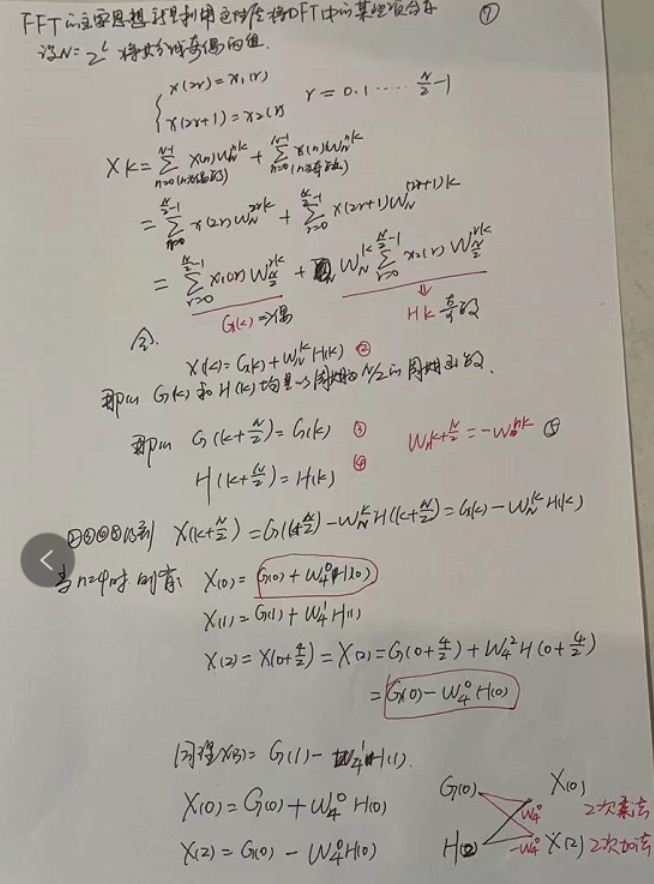 FFT的主要思想就是利用它时候将DFT中的某些项合并 ①
设N=2^L 将其分成奇偶两组.
{ x(2r)=x₁(r)
x(2r+1)=x₂(r) r=0.1····· N/2-1
Xk=∑_{n=0(n为偶数)}^{N-1} x(n)W_N^{nk} + ∑_{n=0(n为奇数)}^{N-1} x(n)W_N^{nk}
=∑_{n=0}^{N/2-1} x(2r)W_N^{2rk} + ∑_{r=0}^{N/2-1} x(2r+1)W_N^{(2r+1)k}
=∑_{r=0}^{N/2-1} x₁(r)W_{N/2}^{rk} + W_N^k ∑_{r=0}^{N/2-1} x₂(r)W_{N/2}^{rk}
G(k)⇒偶 ⇓ Hk 奇数
令.
X(k)=G(k)+W_N^k H(k) ②
那么 G(k)和H(k)均是以周期为N/2的周期函数.
那么 G(k+N/2)=G(k) ③ W_N^{k+N/2}=-W_N^{nk} ⑤
H(k+N/2)=H(k) ④
②③④⑤得到 X(k+N/2)=G(k+N/2)-W_N^k H(k+N/2)=G(k)-W_N^k H(k)
当n=4时.则有: X(0)=G(0)+W₄⁰H(0)
X(1)=G(1)+W₄¹H(1)
X(2)=X(0+4/2)=X(2)=G(0+4/2)+W₄²H(0+4/2)
=G(0)-W₄⁰H(0)
同理X(3)=G(1)-W₄¹H(1).
X(0)=G(0)+W₄⁰H(0)
X(2)=G(0)-W₄⁰H(0)
G(0) X(0)
W₄⁰ 2次乘法
H(0) -W₄⁰ X(2) 2次加法